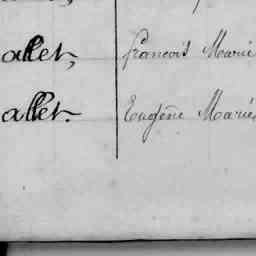 allet, François Marie
allet. Eugène Marie